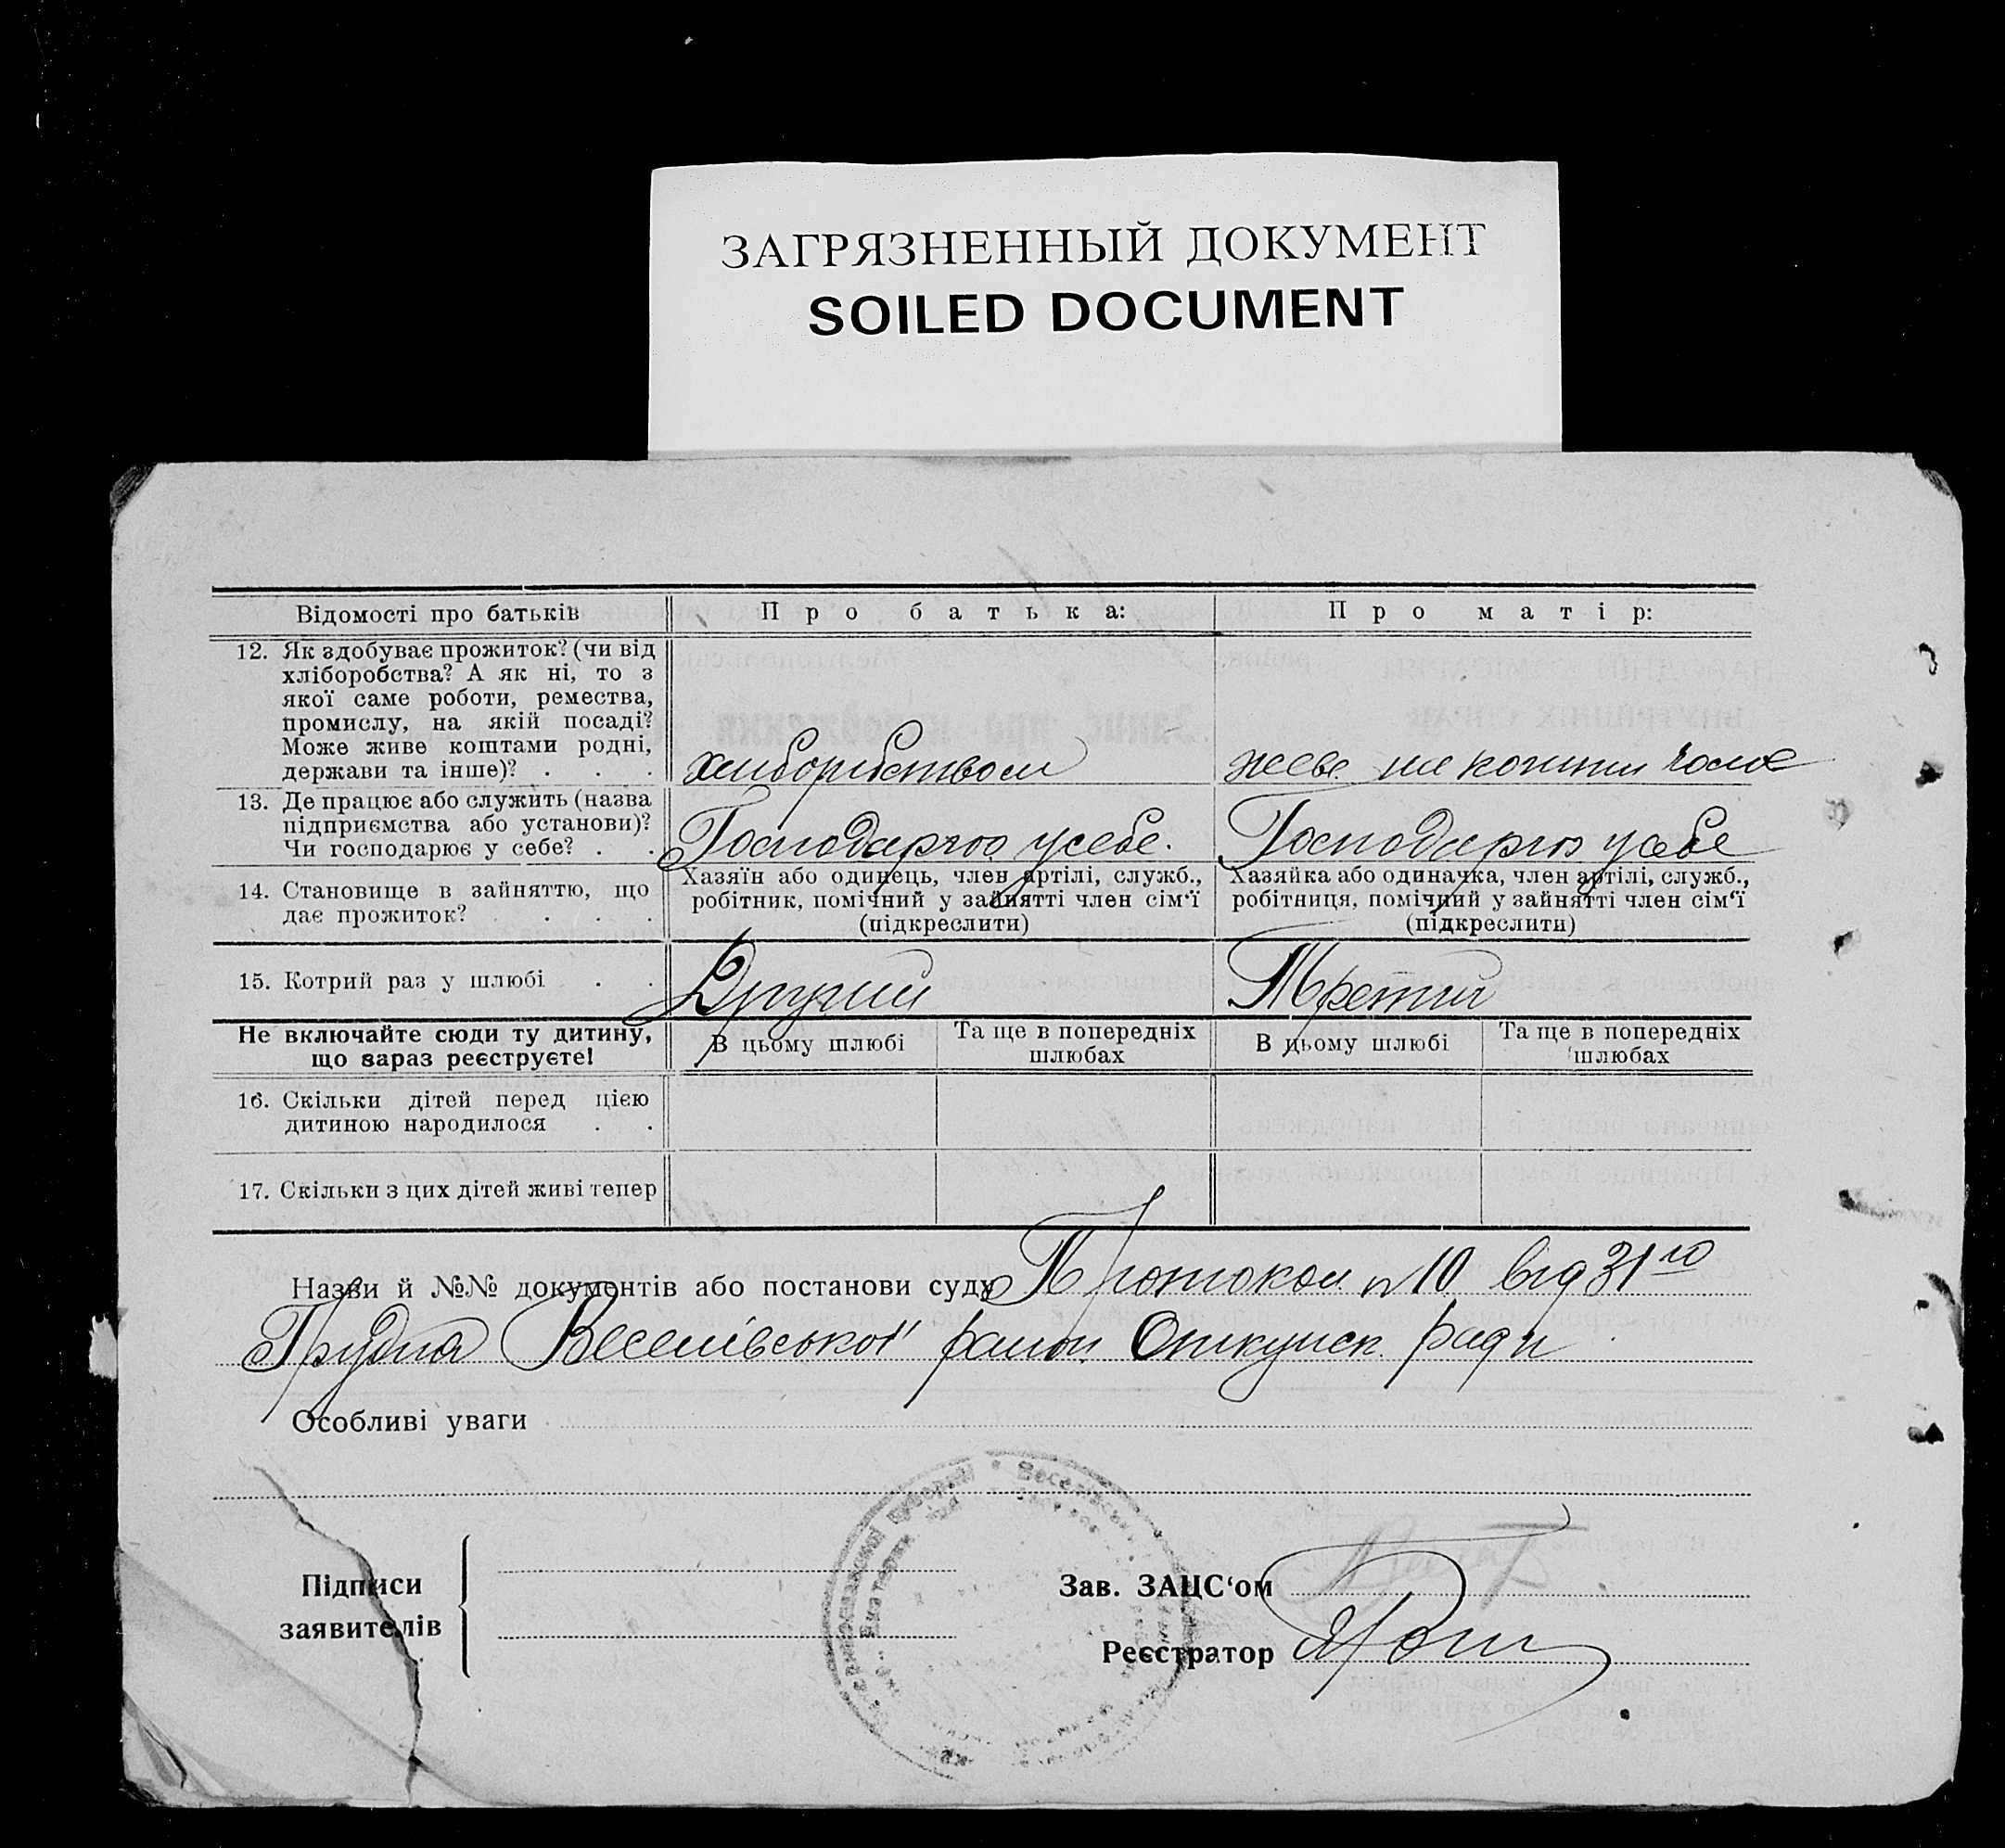 ЗАГРЯЗНЕННЫЙ ДОКУМЕНТ
SOILED DOCUMENT
Відомості про батьків
Про батька:
Про матір:
12. Як здобуває прожиток? (чи від
хліборобства? А як ні, то з
якої саме роботи, ремества,
промислу, на якій посаді?
Може живе коштами родні,
держави та інше)? . . .
хліборобством
живе на кошти
13. Де працює або служить (назва
підприємства або установи)?
Чи господарює у себе? . .
Господарює у себе.
Господарює у себе
14. Становище в зайняттю, що
дає прожиток? . . .
Хазяїн або одинець, член артілі, служб.,
робітник, помічний у зайнятті член сім'ї
(підкреслити)
Хазяйка або одиначка, член артілі, служб.,
робітниця, помічний у зайнятті член сім'ї
(підкреслити)
15. Котрий раз у шлюбі . .
Другий
Третій
Не включайте сюди ту дитину,
що зараз реєструєте!
В цьому шлюбі
Та ще в попередніх
шлюбах
В цьому шлюбі
Та ще в попередніх
шлюбах
16. Скільки дітей перед цією
дитиною народилося . .
17. Скільки з цих дітей живі тепер
Назви й №№ документів або постанови суду Протокол № 10 від 31го
Грудня Веселівської район. Опікунск. ради
Особливі уваги
Підписи
заявителів
Зав. ЗАЦС'ом
Реєстратор